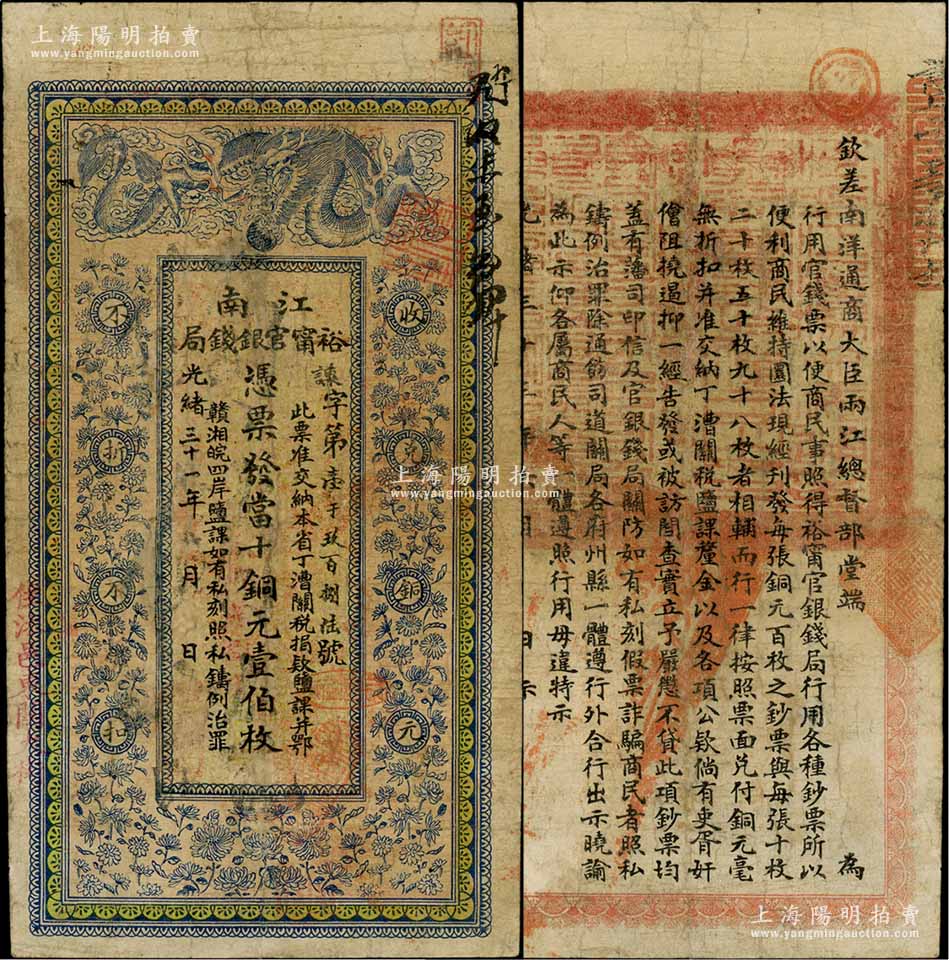 上海陽明拍賣
www.yangmingauction.com
江南
裕甯官銀錢局
諫字第壹千玖百捌拾號
此票准交納本省丁漕關稅捐欵鹽課并鄂
憑票發當十銅元壹伯枚
贛湘皖四岸鹽課如有私刻照私鑄例治罪
光緒三十一年 月 日
收兌銅元
不折不扣
欽差南洋通商大臣兩江總督部堂端 為
行用官錢票以便商民事照得裕甯官銀錢局行用各種鈔票所以
便利商民維持圜法現經刊發每張銅元百枚之鈔票與每張十枚
二十枚五十枚九十八枚者相輔而行一律按照票面兌付銅元毫
無折扣并准交納丁漕關稅鹽課釐金以及各項公欵倘有吏胥奸
儈阻撓遏抑一經告發或被訪聞查實立予嚴懲不貸此項鈔票均
蓋有藩司印信及官銀錢局關防如有私刻假票詐騙商民者照私
鑄例治罪除通飭司道關局各府州縣一體遵行外合行出示曉諭
為此示仰各屬商民人等一體遵照行用毋違特示
光緒三十 年 月 日示
上海陽明拍賣
www.yangmingauction.com
上海陽明拍賣
www.yangmingauction.com